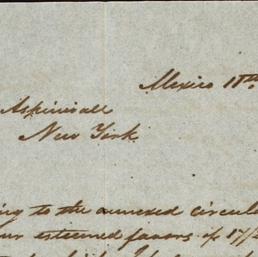 Mexico 11th
Aspinwall
New York
ing to the annexed circula
our esteemed favors of 17/